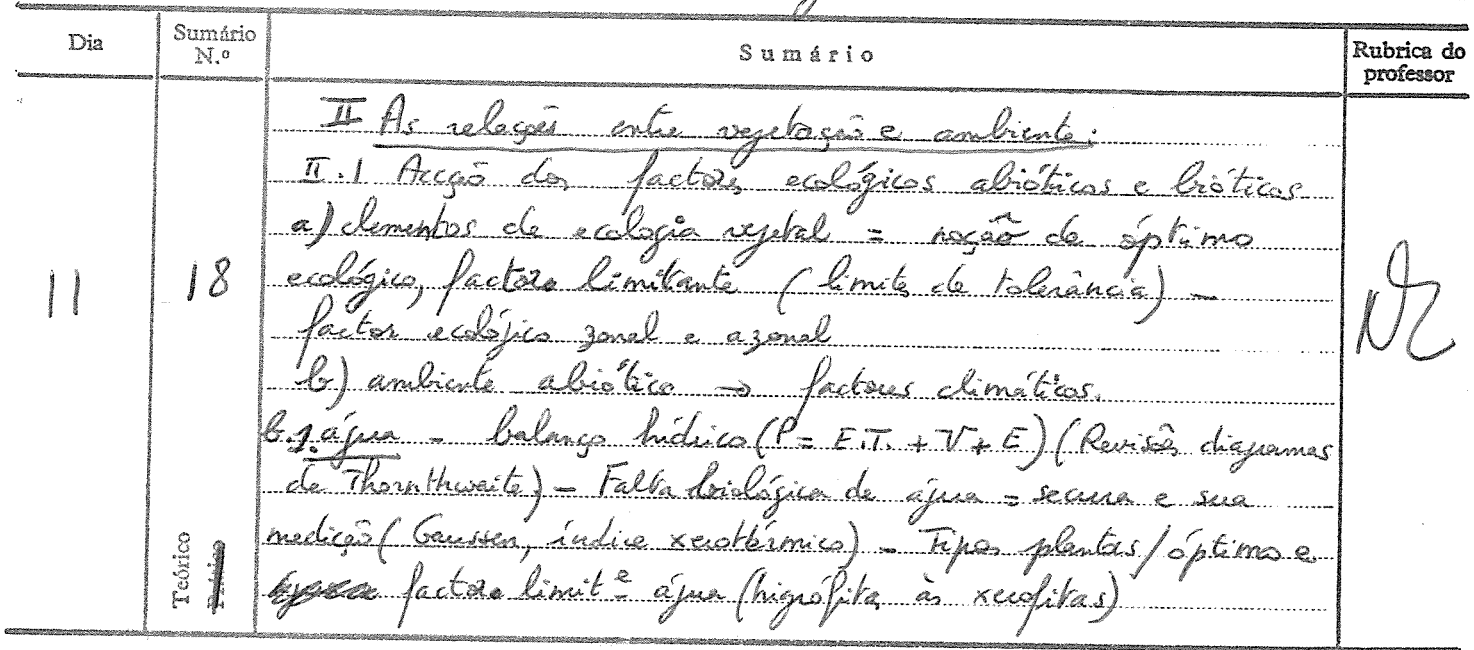 Dia
Sumário N.º
Sumário
Rubrica do professor
11
18
Teórico
II As relações entre vegetação e ambiente:
II.1 Acção dos factores ecológicos abióticos e bióticos
a) elementos de ecologia vegetal = noção de óptimo
ecológico, factores limitante (limite de tolerância) -
factor ecológico zonal e azonal
b) ambiente abiótico → factores climáticos.
b.1. água - balanço hídrico (P = E.T. + V + E) (Revisões diagramas
de Thornthwaite) - Falta biológica de água = secura e sua
medição (Gaussen, índice xerotérmico) - Tipos plantas/óptimo e
factores limit.e água (higrófita às xerofitas)